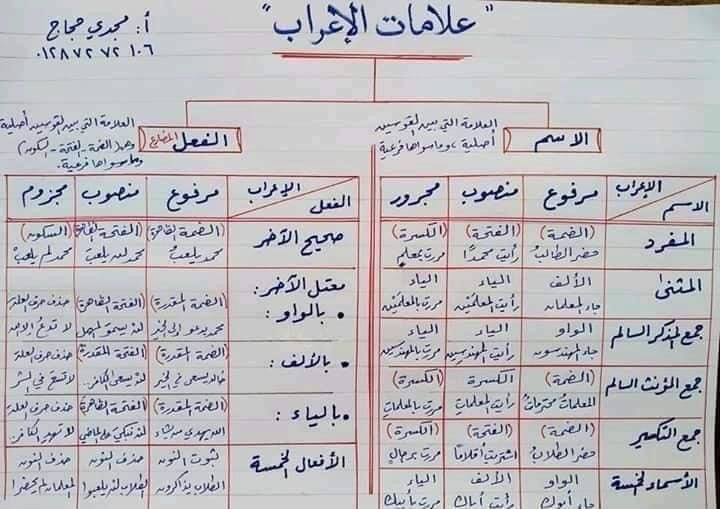 "علامات الإعراب"
أ: مجدي حجاج
٠١٢٨٧٢٧٢١٠٦
العلامة التي بين القوسين
أصلية، وماسواها فرعية
الاسم
الإعراب / الاسم | مرفوع | منصوب | مجرور
المفرد | (الضمة) حضر الطالبُ | (الفتحة) رأيت محمدًا | (الكسرة) مررت بمعلمٍ
المثنى | الألف جاء المعلمان | الياء رأيت المعلمَيْن | الياء مررت بالمعلمَيْن
جمع المذكر السالم | الواو جاء المهندسون | الياء رأيت المهندسين | الياء مررت بالمهندسين
جمع المؤنث السالم | (الضمة) المعلماتُ محترماتٌ | الكسرة رأيت المعلماتِ | (الكسرة) مررت بالمعلماتِ
جمع التكسير | (الضمة) حضر الطلابُ | (الفتحة) اشتريت أقلامًا | (الكسرة) مررت برجالٍ
الأسماء الخمسة | الواو جاء أبوك | الألف رأيت أباك | الياء مررت بأبيك
العلامة التي بين القوسين أصلية
وهى (الضمة - الفتحة - السكون)
وماسواها فرعية.
الفعل المضارع
الإعراب / الفعل | مرفوع | منصوب | مجزوم
صحيح الآخر | (الضمة الظاهرة) محمد يلعبُ | (الفتحة الظاهرة) محمد لن يلعبَ | (السكون) محمد لم يلعبْ
معتل الآخر:
• بالواو: | (الضمة المقدرة) محمد يدعو إلى الخير | (الفتحة الظاهرة) لن يسموَ | حذف حرف العلة لا تدعُ
• بالألف: | (الضمة المقدرة) خالد يسعى في الخير | (الفتحة المقدرة) لن يسعى الكافر | حذف حرف العلة لا تسعَ في الشر
• بالياء: | (الضمة المقدرة) الله يهدي من يشاء | (الفتحة الظاهرة) لن تبكيَ على الماضي | حذف حرف العلة
الأفعال الخمسة | ثبوت النون الطلاب يذاكرون | حذف النون الطلاب لن يلعبوا | حذف النون المعلمان لم يحضرا